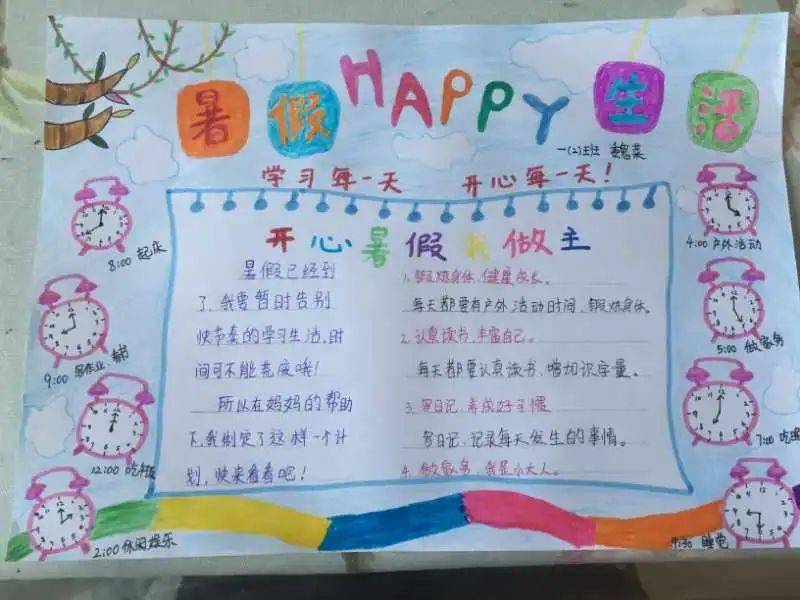 暑假 HAPPY 生活
一(2)班
学习每一天 开心每一天!
开心暑假我做主
暑假已经到
了,我要暂时告别
快节奏的学习生活,时
间可不能荒废哦!
所以在妈妈的帮助
下,我制定了这样一个计
划,快来看看吧!
1.锻炼身体、健康成长。
每天都要有户外活动时间、锻炼身体。
2.认真读书,丰富自己。
每天都要认真读书、增加识字量。
3.写日记、养成好习惯
写日记、记录每天发生的事情。
4.做家务,我是小大人。
8:00 起床
9:00 写作业、
12:00 吃午饭
2:00 休闲娱乐
4:00 户外活动
5:00 做家务
7:00 吃
9:30 睡觉